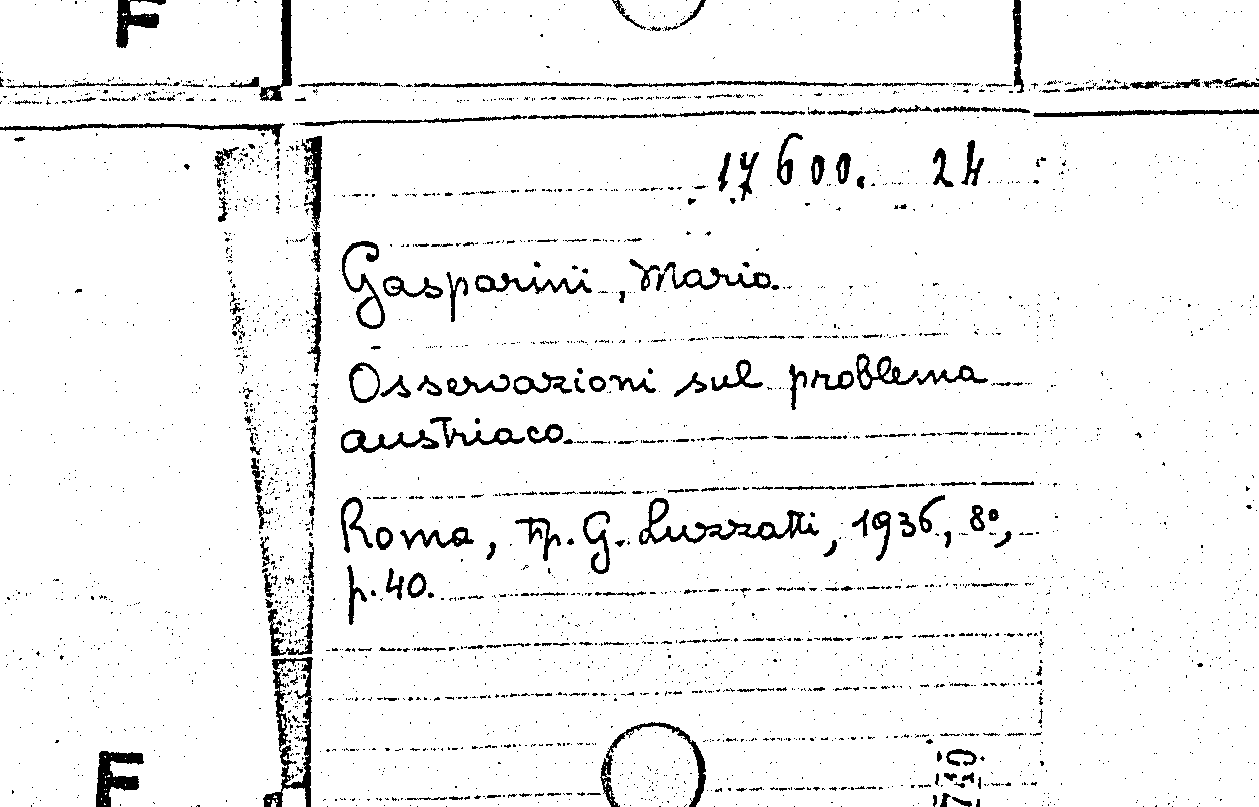 F
17600. 24
Gasparini, Mario
Osservazioni sul problema
austriaco
Roma, Tip. G. Luzzatti, 1936, 8º,
p. 40.
F